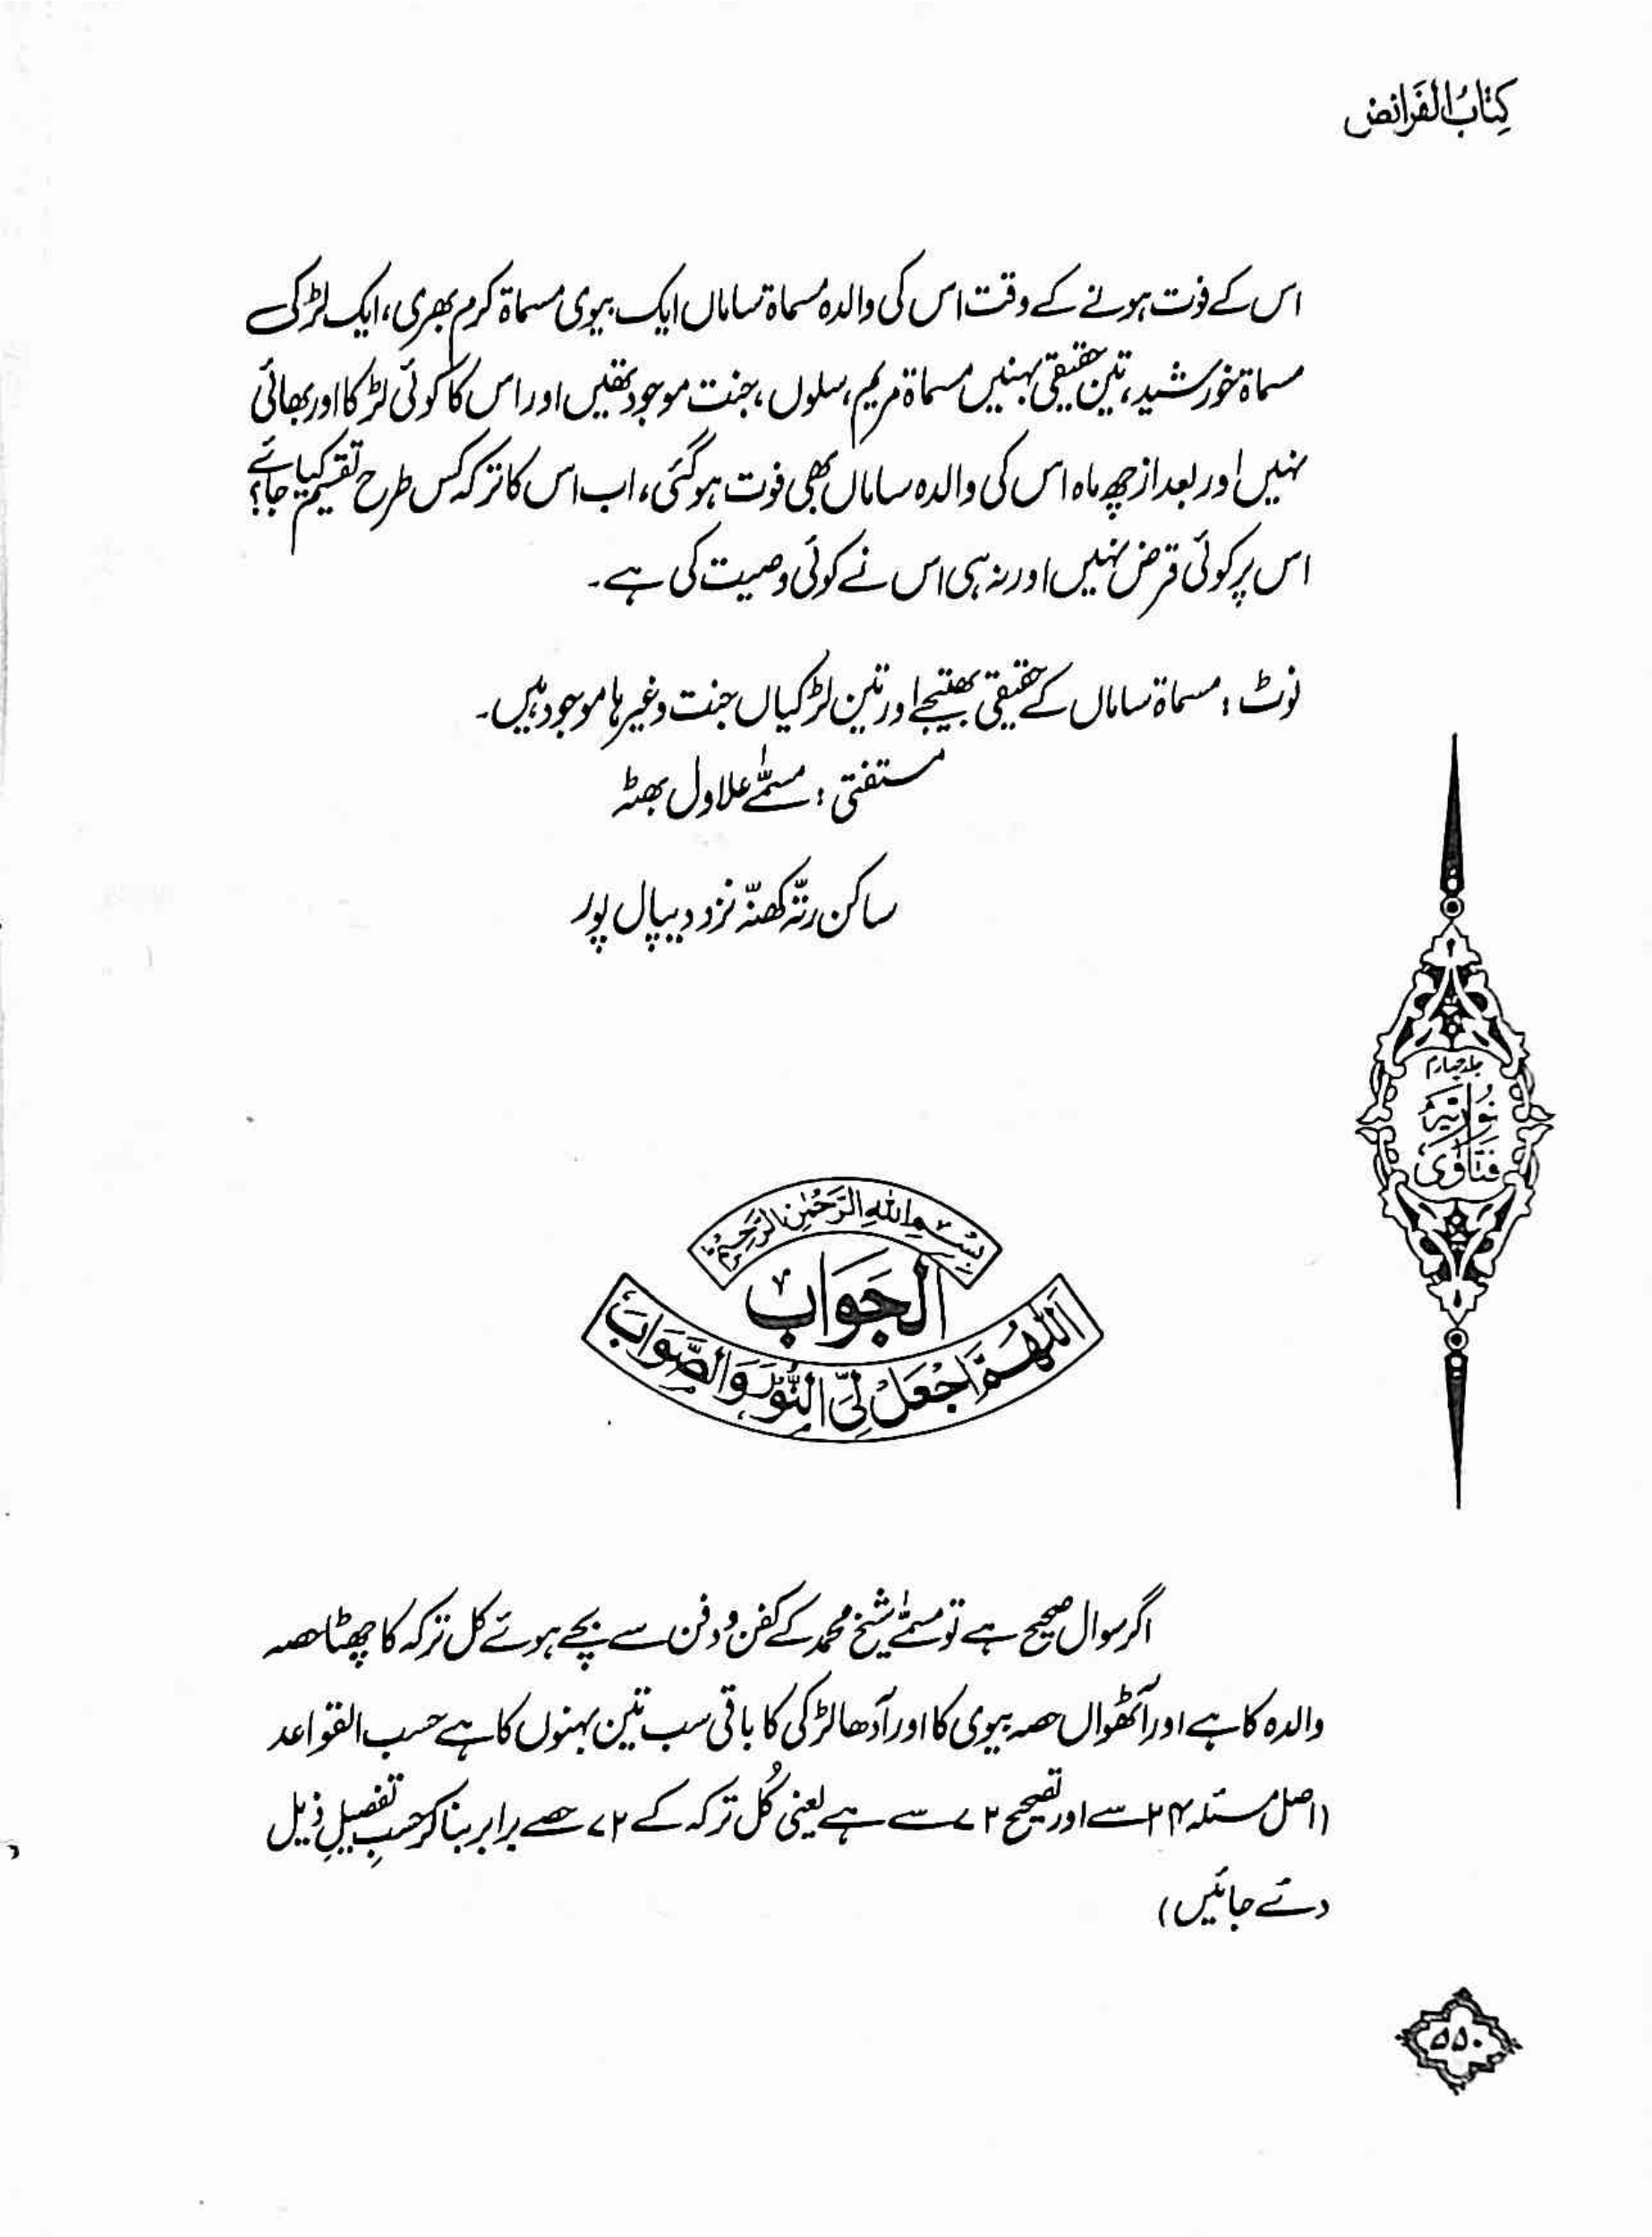 کِتَابُ الفَرائض
اس کے فوت ہونے کے وقت اس کی والدہ مسماۃ ساماں ایک بیوی مسماۃ کرم بھری، ایک لڑکی
مسماۃ خورشید، تین حقیقی بہنیں مسماۃ مریم، سلوں، جنت موجود تھیں اور اس کا کوئی لڑکا اور بھائی
نہیں اور بعد از چھ ماہ اس کی والدہ ساماں بھی فوت ہو گئی، اب اس کا ترکہ کس طرح تقسیم کیا جائے؟
اس پر کوئی قرض نہیں اور نہ ہی اس نے کوئی وصیت کی ہے۔
نوٹ: مسماۃ ساماں کے حقیقی بھتیجے اور تین لڑکیاں جنت وغیرہا موجود ہیں۔
مستفتی: مسمّٰے علاول بھٹہ
ساکن رتہ کھنہ نزد دیپال پور
جلد چہارم
نُورِیَّہ
فَتَاوٰی
بِسْمِ اللهِ الرَّحْمٰنِ الرَّحِيْمِ
اَلجَوَابُ
اَللّٰهُمَّ اجْعَلْ لِّيَ النُّوْرَ وَالصَّوَابَ
اگر سوال صحیح ہے تو مسمّٰے شیخ محمد کے کفن و دفن سے بچے ہوئے کل ترکہ کا چھٹا حصہ
والدہ کا ہے اور آٹھواں حصہ بیوی کا اور آدھا لڑکی کا باقی سب تین بہنوں کا ہے حسب القواعد
(اصل مسئلہ ۲۴ سے اور تصحیح ۷۲ سے ہے یعنی کُل ترکہ کے ۷۲ حصے برابر بنا کر حسبِ تفصیلِ ذیل
دئے جائیں)
۵۵۰